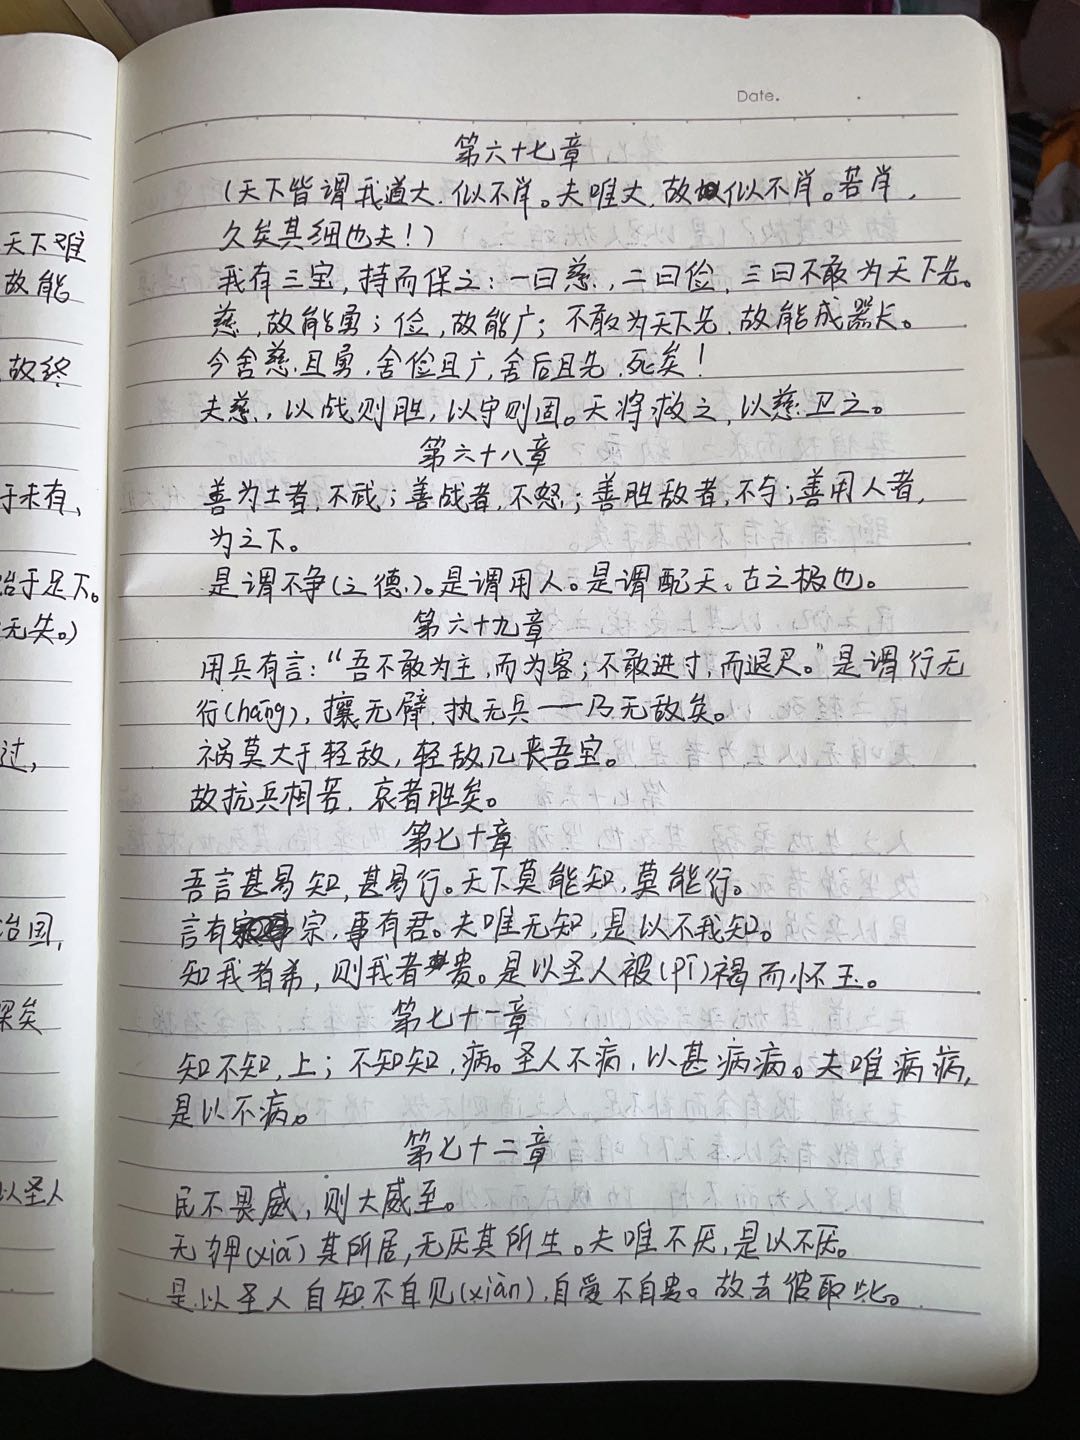 Date.
第六十七章
(天下皆谓我道大,似不肖。夫唯大,故似不肖。若肖,
久矣其细也夫!)
我有三宝,持而保之:一曰慈,二曰俭,三曰不敢为天下先。
慈,故能勇;俭,故能广;不敢为天下先,故能成器长。
今舍慈且勇,舍俭且广,舍后且先,死矣!
夫慈,以战则胜,以守则固。天将救之,以慈卫之。
第六十八章
善为士者,不武;善战者,不怒;善胜敌者,不与;善用人者,
为之下。
是谓不争(之德)。是谓用人。是谓配天、古之极也。
第六十九章
用兵有言:“吾不敢为主,而为客;不敢进寸,而退尺。”是谓行无
行(háng),攘无臂,执无兵——乃无敌矣。
祸莫大于轻敌,轻敌几丧吾宝。
故抗兵相若,哀者胜矣。
第七十章
吾言甚易知,甚易行。天下莫能知,莫能行。
言有宗,事有君。夫唯无知,是以不我知。
知我者希,则我者贵。是以圣人被(pī)褐而怀玉。
第七十一章
知不知,上;不知知,病。圣人不病,以甚病病。夫唯病病,
是以不病。
第七十二章
民不畏威,则大威至。
无狎(xiá)其所居,无厌其所生。夫唯不厌,是以不厌。
是以圣人自知不自见(xiàn),自爱不自贵。故去彼取此。
天下难
故能
故终
于未有,
始于足下。
无失。)
过,
治国,
深矣
以圣人